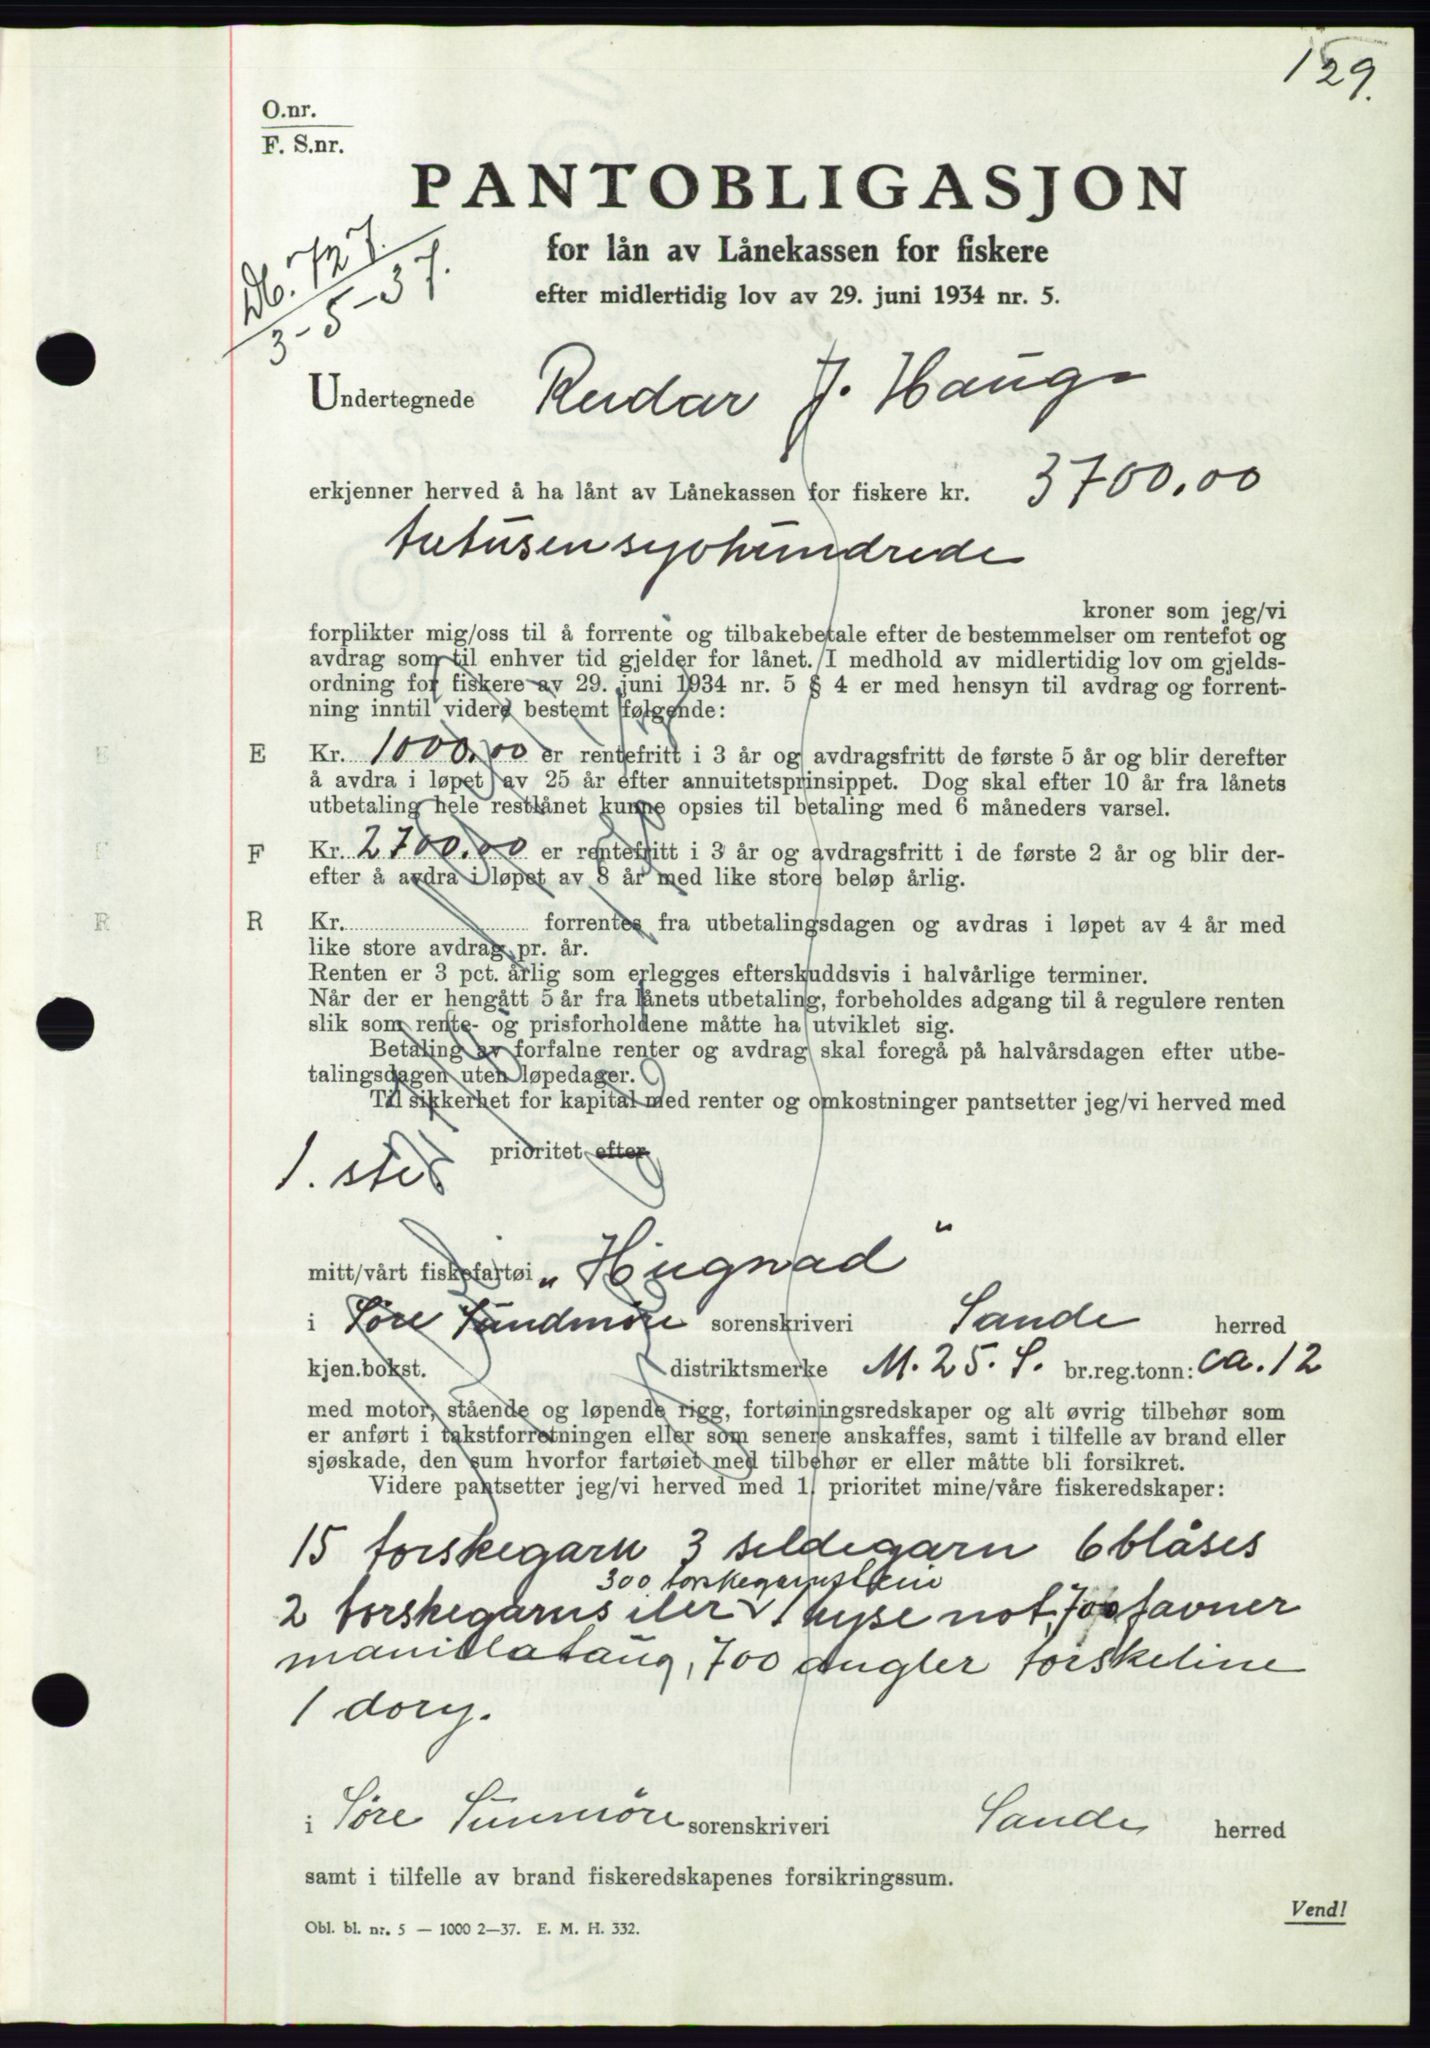 129.
O.nr.
F. S.nr.
PANTOBLIGASJON
for lån av Lånekassen for fiskere
efter midlertidig lov av 29. juni 1934 nr. 5.
Db. 727.
3-5-37.
Undertegnede Reidar J. Haug
erkjenner herved å ha lånt av Lånekassen for fiskere kr. 3700.00
tretusensyvhundrede
kroner som jeg/vi
forplikter mig/oss til å forrente og tilbakebetale efter de bestemmelser om rentefot og
avdrag som til enhver tid gjelder for lånet. I medhold av midlertidig lov om gjelds-
ordning for fiskere av 29. juni 1934 nr. 5 § 4 er med hensyn til avdrag og forrent-
ning inntil videre bestemt følgende:
E Kr. 1000.00 er rentefritt i 3 år og avdragsfritt de første 5 år og blir derefter
å avdra i løpet av 25 år efter annuitetsprinsippet. Dog skal efter 10 år fra lånets
utbetaling hele restlånet kunne opsies til betaling med 6 måneders varsel.
F Kr. 2700.00 er rentefritt i 3 år og avdragsfritt i de første 2 år og blir der-
efter å avdra i løpet av 8 år med like store beløp årlig.
R Kr. forrentes fra utbetalingsdagen og avdras i løpet av 4 år med
like store avdrag pr. år.
Renten er 3 pct. årlig som erlegges efterskuddsvis i halvårlige terminer.
Når der er hengått 5 år fra lånets utbetaling, forbeholdes adgang til å regulere renten
slik som rente- og prisforholdene måtte ha utviklet sig.
Betaling av forfalne renter og avdrag skal foregå på halvårsdagen efter utbe-
talingsdagen uten løpedager.
Til sikkerhet for kapital med renter og omkostninger pantsetter jeg/vi herved med
1. ste prioritet efter
mitt/vårt fiskefartøi "Hugnad"
i Søre Sundmøre sorenskriveri Sande herred
kjen.bokst. distriktsmerke M. 25. S. br.reg.tonn: ca. 12
med motor, stående og løpende rigg, fortøiningsredskaper og alt øvrig tilbehør som
er anført i takstforretningen eller som senere anskaffes, samt i tilfelle av brand eller
sjøskade, den sum hvorfor fartøiet med tilbehør er eller måtte bli forsikret.
Videre pantsetter jeg/vi herved med 1. prioritet mine/våre fiskeredskaper:
15 torskegarn 3 seldegarn 6 blåses
300 torskegarnstein
2 torskegarns iler 1 hyse not, 700 favner
manillataug, 700 angler torskeline
1 dory.
i Søre Sunmøre sorenskriveri Sande herred
samt i tilfelle av brand fiskeredskapenes forsikringssum.
Vend!
Obl. bl. nr. 5 — 1000 2—37. E. M. H. 332.